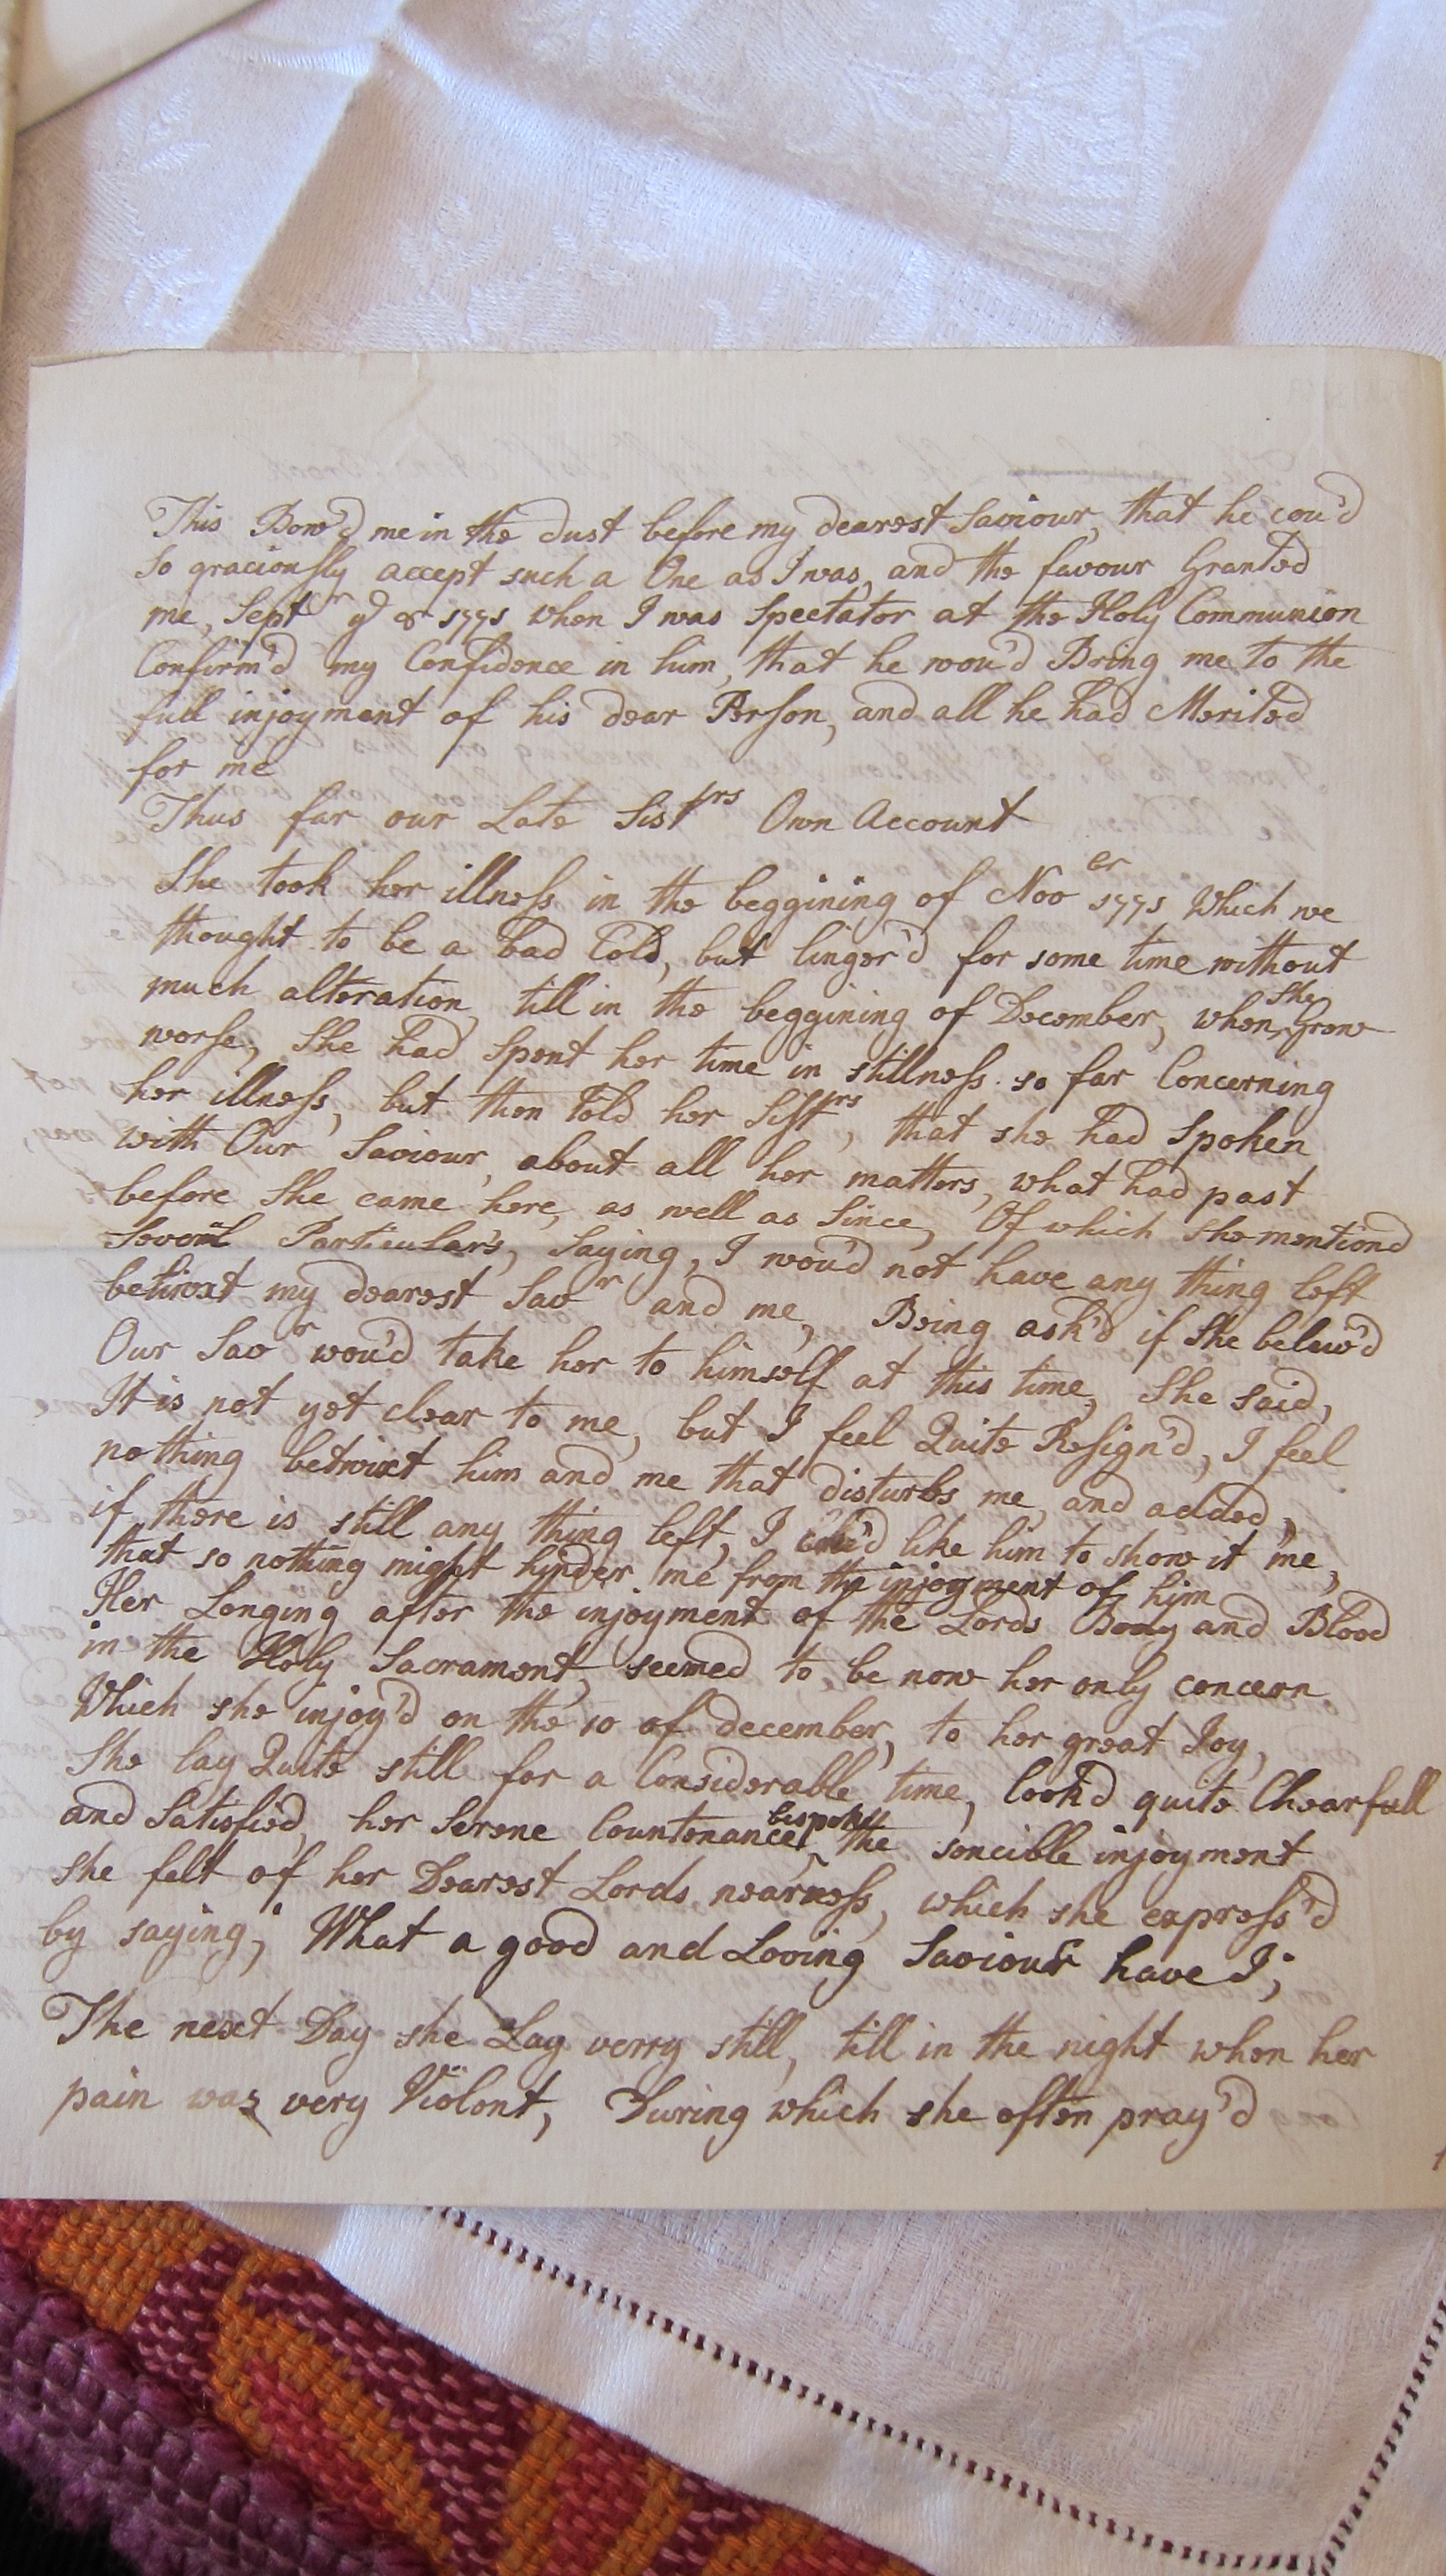 This Bow'd me in the dust before my dearest Saviour, that he cou'd
So graciously accept such a One as I was, and the favour Granted
me, Septr ye 8 1771 when I was Spectator at the Holy Communion
Confirm'd my Confidence in him, that he wou'd Bring me to the
full injoyment of his dear Person, and all he had Merited
for me
Thus far our Late Sistrs Own Account
She took her illness in the beggining of Nover 1771 Which we
thought to be a bad Cold, but linger'd for some time without
much alteration, till in the beggining of December, when she Grow
worse, She had Spent her time in stillness so far Concerning
her illness, but then told her Sistrs, that she had Spoken
with Our Saviour, about all her matters, what had past
before She came here, as well as Since, Of which she mentiond
Several Particulars, Saying, I wou'd not have any thing left
betwixt my dearest Savr and me, Being ask'd if She belew'd
Our Savr wou'd take her to himself at this time, She said,
It is not yet clear to me, but I feel Quite Resign'd, I feel
nothing betwixt him and me that disturbs me, and added,
if there is still any thing left, I like him to show it me,
that so nothing might hinder me from the injoyment of him
Her Longing after the injoyment of the Lords Body and Blood
in the Holy Sacrament, seemed to be now her only concern
Which she injoy'd on the 10 of december, to her great Joy,
She lay Quite still for a Considerable time, look'd quite Chearfull
and Satisfied, her Serene Countenance bespoke the sencible injoyment
she felt of her Dearest Lords nearness, which she express'd
by saying; What a good and Loving Saviour have I;
The next Day she Lay verry still, till in the night when her
pain was very Violent, During which she often pray'd